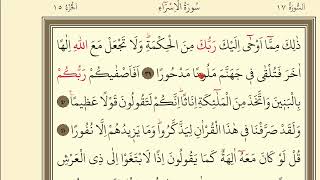 السُّورَةُ ١٧ سُورَةُ الْإِسْرَاءِ الْجُزْءُ ١٥
ذٰلِكَ مِمَّٓا اَوْحٰٓى اِلَيْكَ رَبُّكَ مِنَ الْحِكْمَةِۜ وَلَا تَجْعَلْ مَعَ اللّٰهِ اِلٰهًا
اٰخَرَ فَتُلْقٰى فِي جَهَنَّمَ مَلُومًا مَدْحُورًا ﴿٣٩﴾ اَفَاَصْفٰيكُمْ رَبُّكُمْ
بِالْبَنِينَ وَاتَّخَذَ مِنَ الْمَلٰٓئِكَةِ اِنَاثًاۜ اِنَّكُمْ لَتَقُولُونَ قَوْلًا عَظِيمًا ﴿٤٠﴾
وَلَقَدْ صَرَّفْنَا فِي هٰذَا الْقُرْاٰنِ لِيَذَّكَّرُواۜ وَمَا يَزِيدُهُمْ اِلَّا نُفُورًا ﴿٤١﴾
قُلْ لَوْ كَانَ مَعَهُٓ اٰلِهَةٌ كَمَا يَقُولُونَ اِذًا لَابْتَغَوْا اِلٰى ذِي الْعَرْشِ